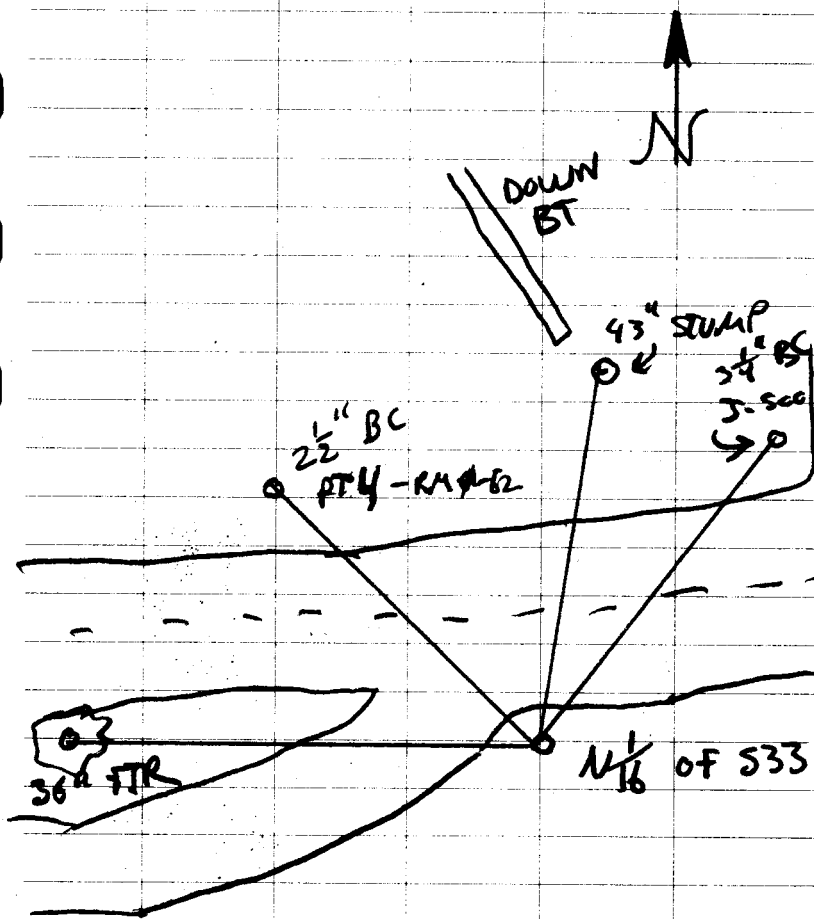 N
DOWN
BT
43" STUMP
3 1/4" BC
2 1/2" BC
PT 4 - RM
36" FIR
N 1/16 OF S33